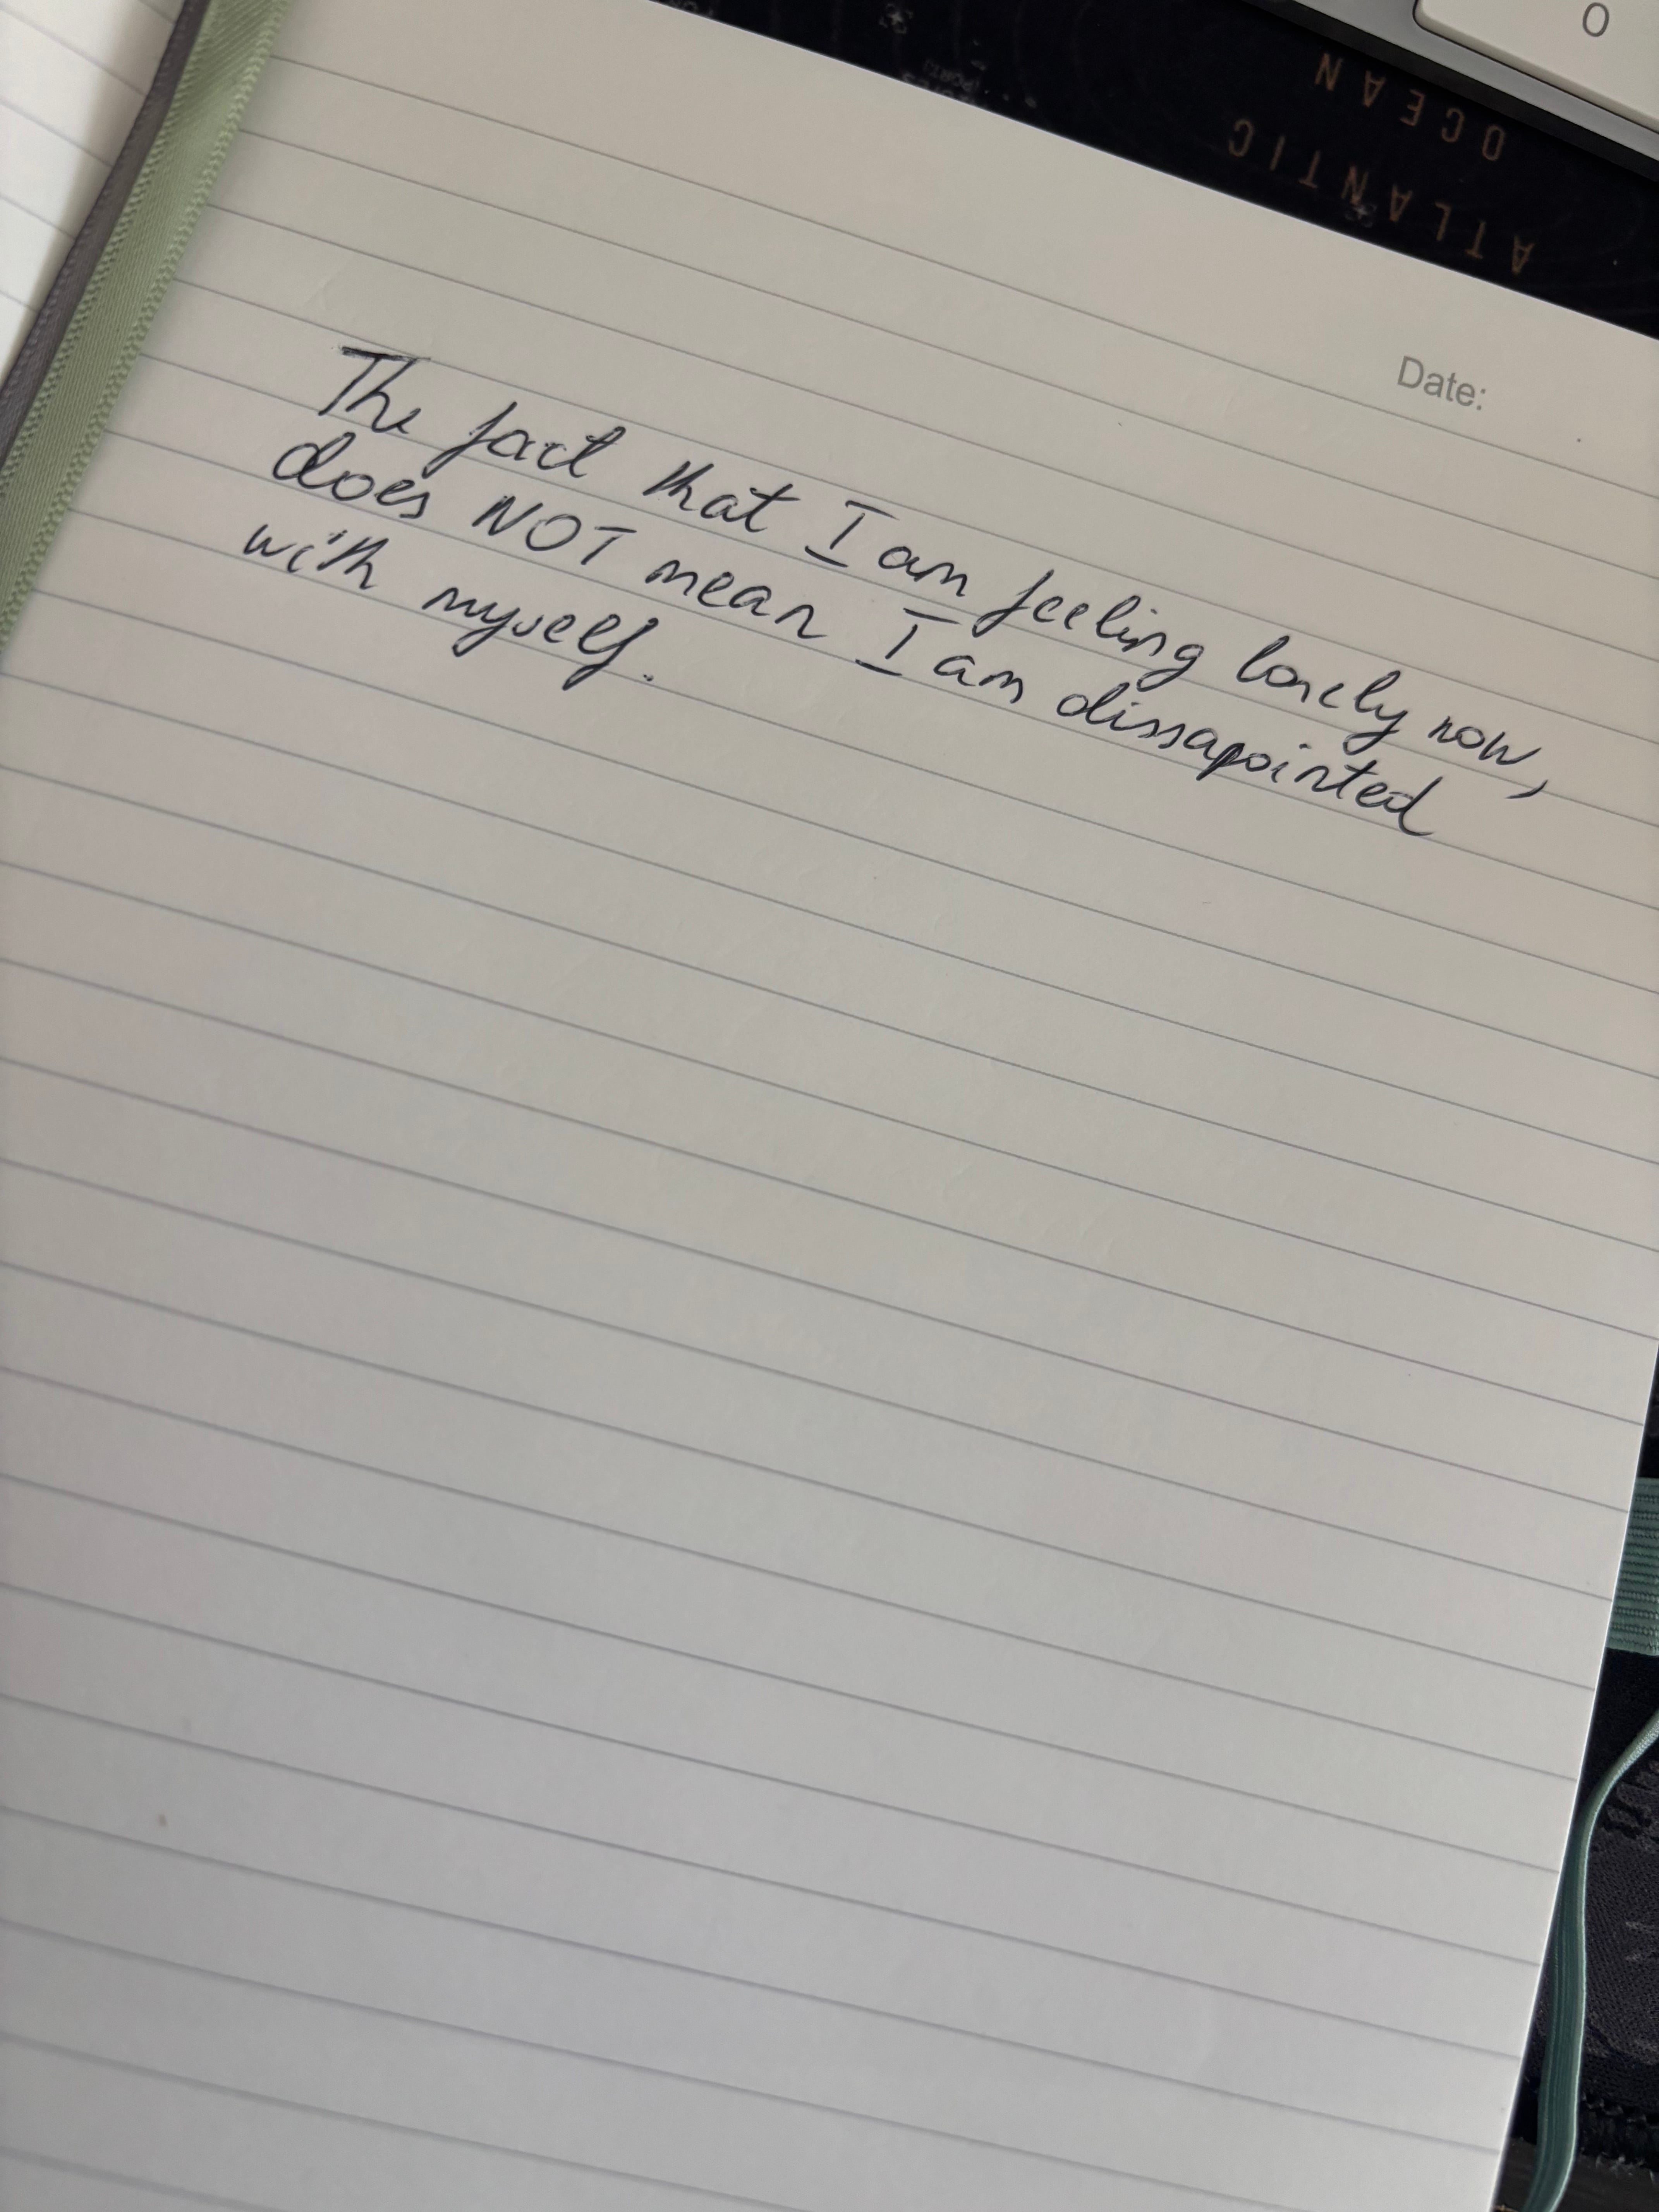 O
ATLANTIC
OCEAN
Date:
The fact that I am feeling lonely now,
does NOT mean I am dissapointed
with myself.